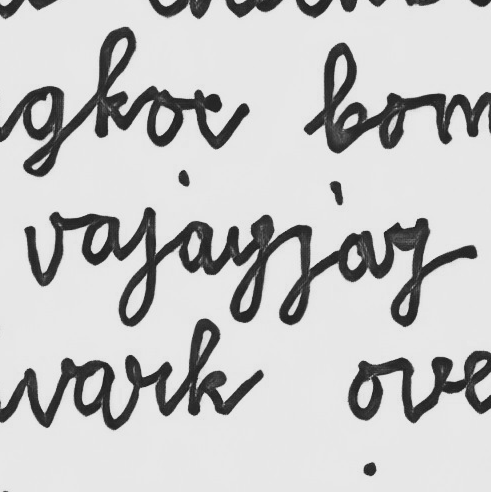 gkor bom
vajayjay
vark ove